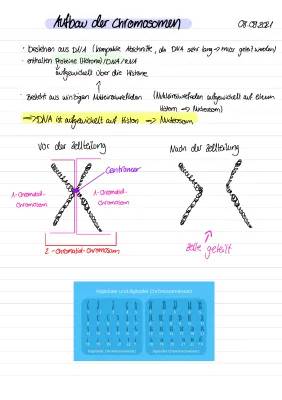 Aufbau der Chromosomen 08.09.2021
· bestehen aus DNA (kompakte Abschnitte, da DNA sehr lang →
· enthalten Proteine (Histone)/DNA/RNA
aufgewickelt über die Histone
· Besteht aus winzigen (Nukleinsäurefäden aufgewickelt auf einem
Histon → Nukleosom)
→ DNA ist aufgewickelt auf Histon → Nukleosom
Vor der Zellteilung Nach der Zellteilung
Centromer
1-Chromatid-
Chromosom
1-Chromatid-
Chromosom
2-Chromatid-Chromosom
Zelle geteilt
Haploider und diploider Chromosomensatz
Haploider Chromosomensatz Diploider Chromosomensatz